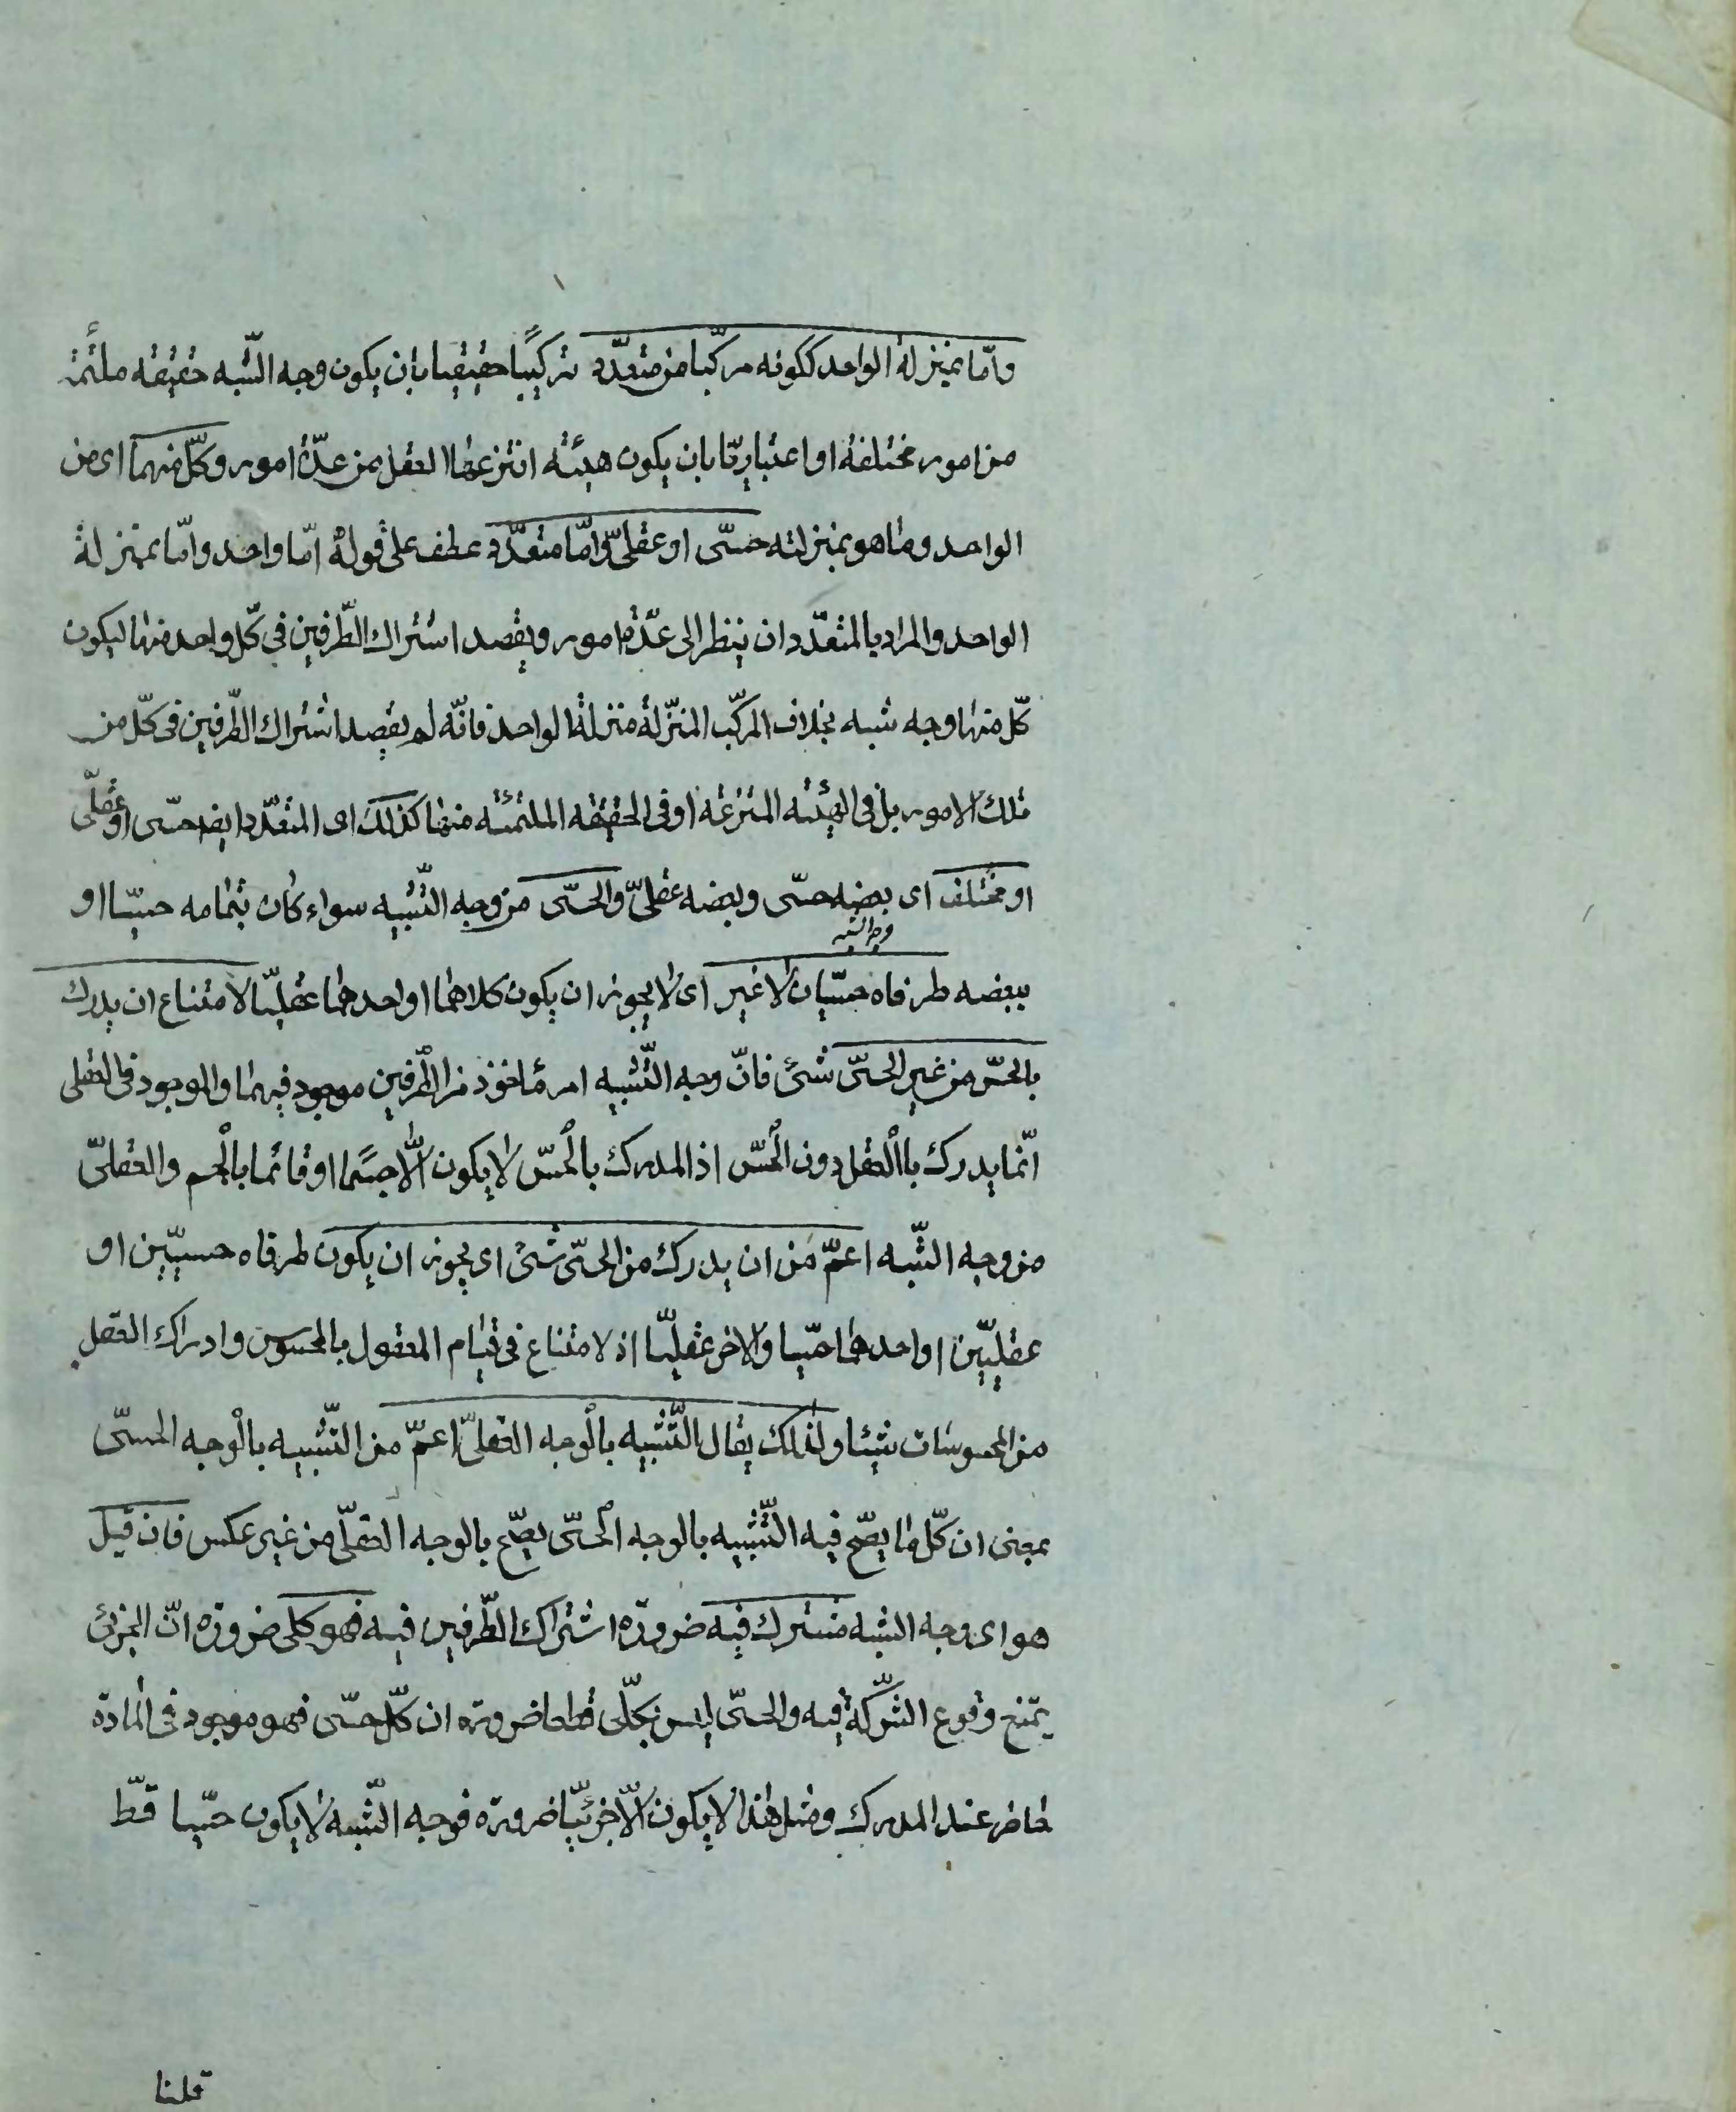 وامّا بمنزلة الواحد لكونه مركّبا من متعدّد تركيبًا حقيقيا بان يكون وجه الشّبه حقيقه ملتئمة
من امور مختلفة او اعتباريّا بان يكون هيئه انتزعها العقل من عدّة امور وكلّ منهما اى من
الواحد وما هو بمنزلته حسّى او عقلىّ وامّا متعدّد عطف على قوله امّا واحد وامّا بمنزلة
الواحد والمراد بالمتعدّد ان ينظر الى عدّة امور ويقصد اشتراك الطّرفين فى كلّ واحد منها ليكون
كلّ منها وجه شبه بخلاف المركّب المنزّلة منزلة الواحد فانّه لم يقصد اشتراك الطّرفين فى كلّ من
تلك الامور بل فى الهيئه المنتزعه او فى الحقيقه الملتئمه منها كذلك اى المتعدّد ايضا حسّى او عقلىّ
او مختلف اى بعضه حسّى وبعضه عقلىّ والحسّى من وجه التّشبيه سواء كان بتمامه حسيّا او
وجه الشبه
ببعضه طرفاه حسّيان لا غير اى لا يجوز ان يكون كلاهما او احدهما عقليّا لامتناع ان يدرك
بالحسّ من غير الحسّى شئ فانّ وجه التّشبيه امر مأخوذ من الطّرفين موجود فيهما والموجود فى العقلى
انّما يدرك باالعقل دون الحسّ اذ المدرك بالحسّ لا يكون الّا جسما او قائما بالجسم والعقلىّ
من وجه الشّبه اعمّ من ان يدرك من الحسّى شئ اى يجوز ان يكون طرفاه حسيّين او
عقليّين او احدهما حسّيا والاخر عقليّا اذ لا متناع فى قيام المعقول بالمحسوس وادراك العقل
من المحسوسات شيئا ولذلك يقال التّشبيه بالوجه العقلىّ اعمّ من التّشبيه بالوجه الحسىّ
بمعنى ان كلّ ما يصحّ فيه التّشبيه بالوجه الحسّى يصحّ بالوجه العقلىّ من غير عكس فان قيل
هو اى وجه الشبه مشترك فيه ضرورة اشتراك الطّرفين فيه فهو كلى ضرورة انّ الجزئى
يمتنع وقوع الشّركة فيه والحسّى ليس بكلّى قطعا ضرورة ان كلّ حسّى فهو موجود فى المادّة
حاضر عند المدرك ومثل هذا لا يكون الّا جزئيّا ضرورة فوجه الشّبه لا يكون حسّيا قطّ
قلنا